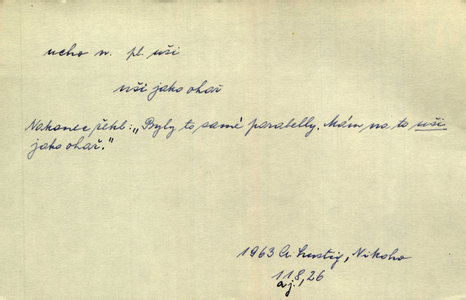 ucho n. pl. uši
uši jako ohař
Nakonec řekl: „Byly to samé parabelly. Mám na to uši
jako ohař."
1963 A. Lustig, Nikoho
118, 26
aj.